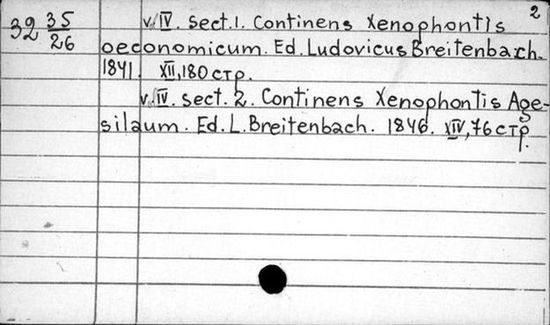 2
39 35/26 v. IV. Sect. 1. Continens Xenophontis
oeconomicum. Ed. Ludovicus Breitenbach.
1841. XII, 180 стр.
v. IV. sect. 2. Continens Xenophontis Age-
silaum. Ed. L. Breitenbach. 1846. XIV, 76 стр.